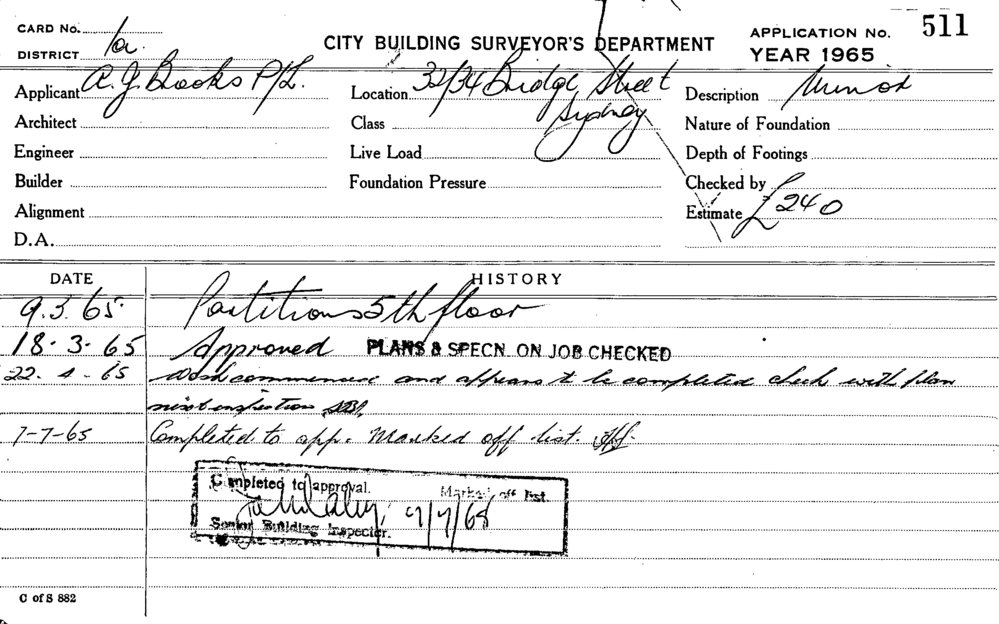 CARD No.
DISTRICT 1a.
CITY BUILDING SURVEYOR'S DEPARTMENT
APPLICATION No. 511
YEAR 1965
Applicant A. J. Brooks P/L.
Location 32/34 Bridge Street
Sydney
Description Minor
Architect
Class
Nature of Foundation
Engineer
Live Load
Depth of Footings
Builder
Foundation Pressure
Checked by
Alignment
Estimate £240
D.A.
DATE HISTORY
9.3.65 Partitions 5th floor
18-3-65 Approved PLANS & SPECN. ON JOB CHECKED
22-4-65 Work commenced and appears to be completed check with plan
next inspection
7-7-65 Completed to app. Marked off list.
Completed to approval. Marked off list.
9/7/65
Senior Building Inspector.
C of S 882